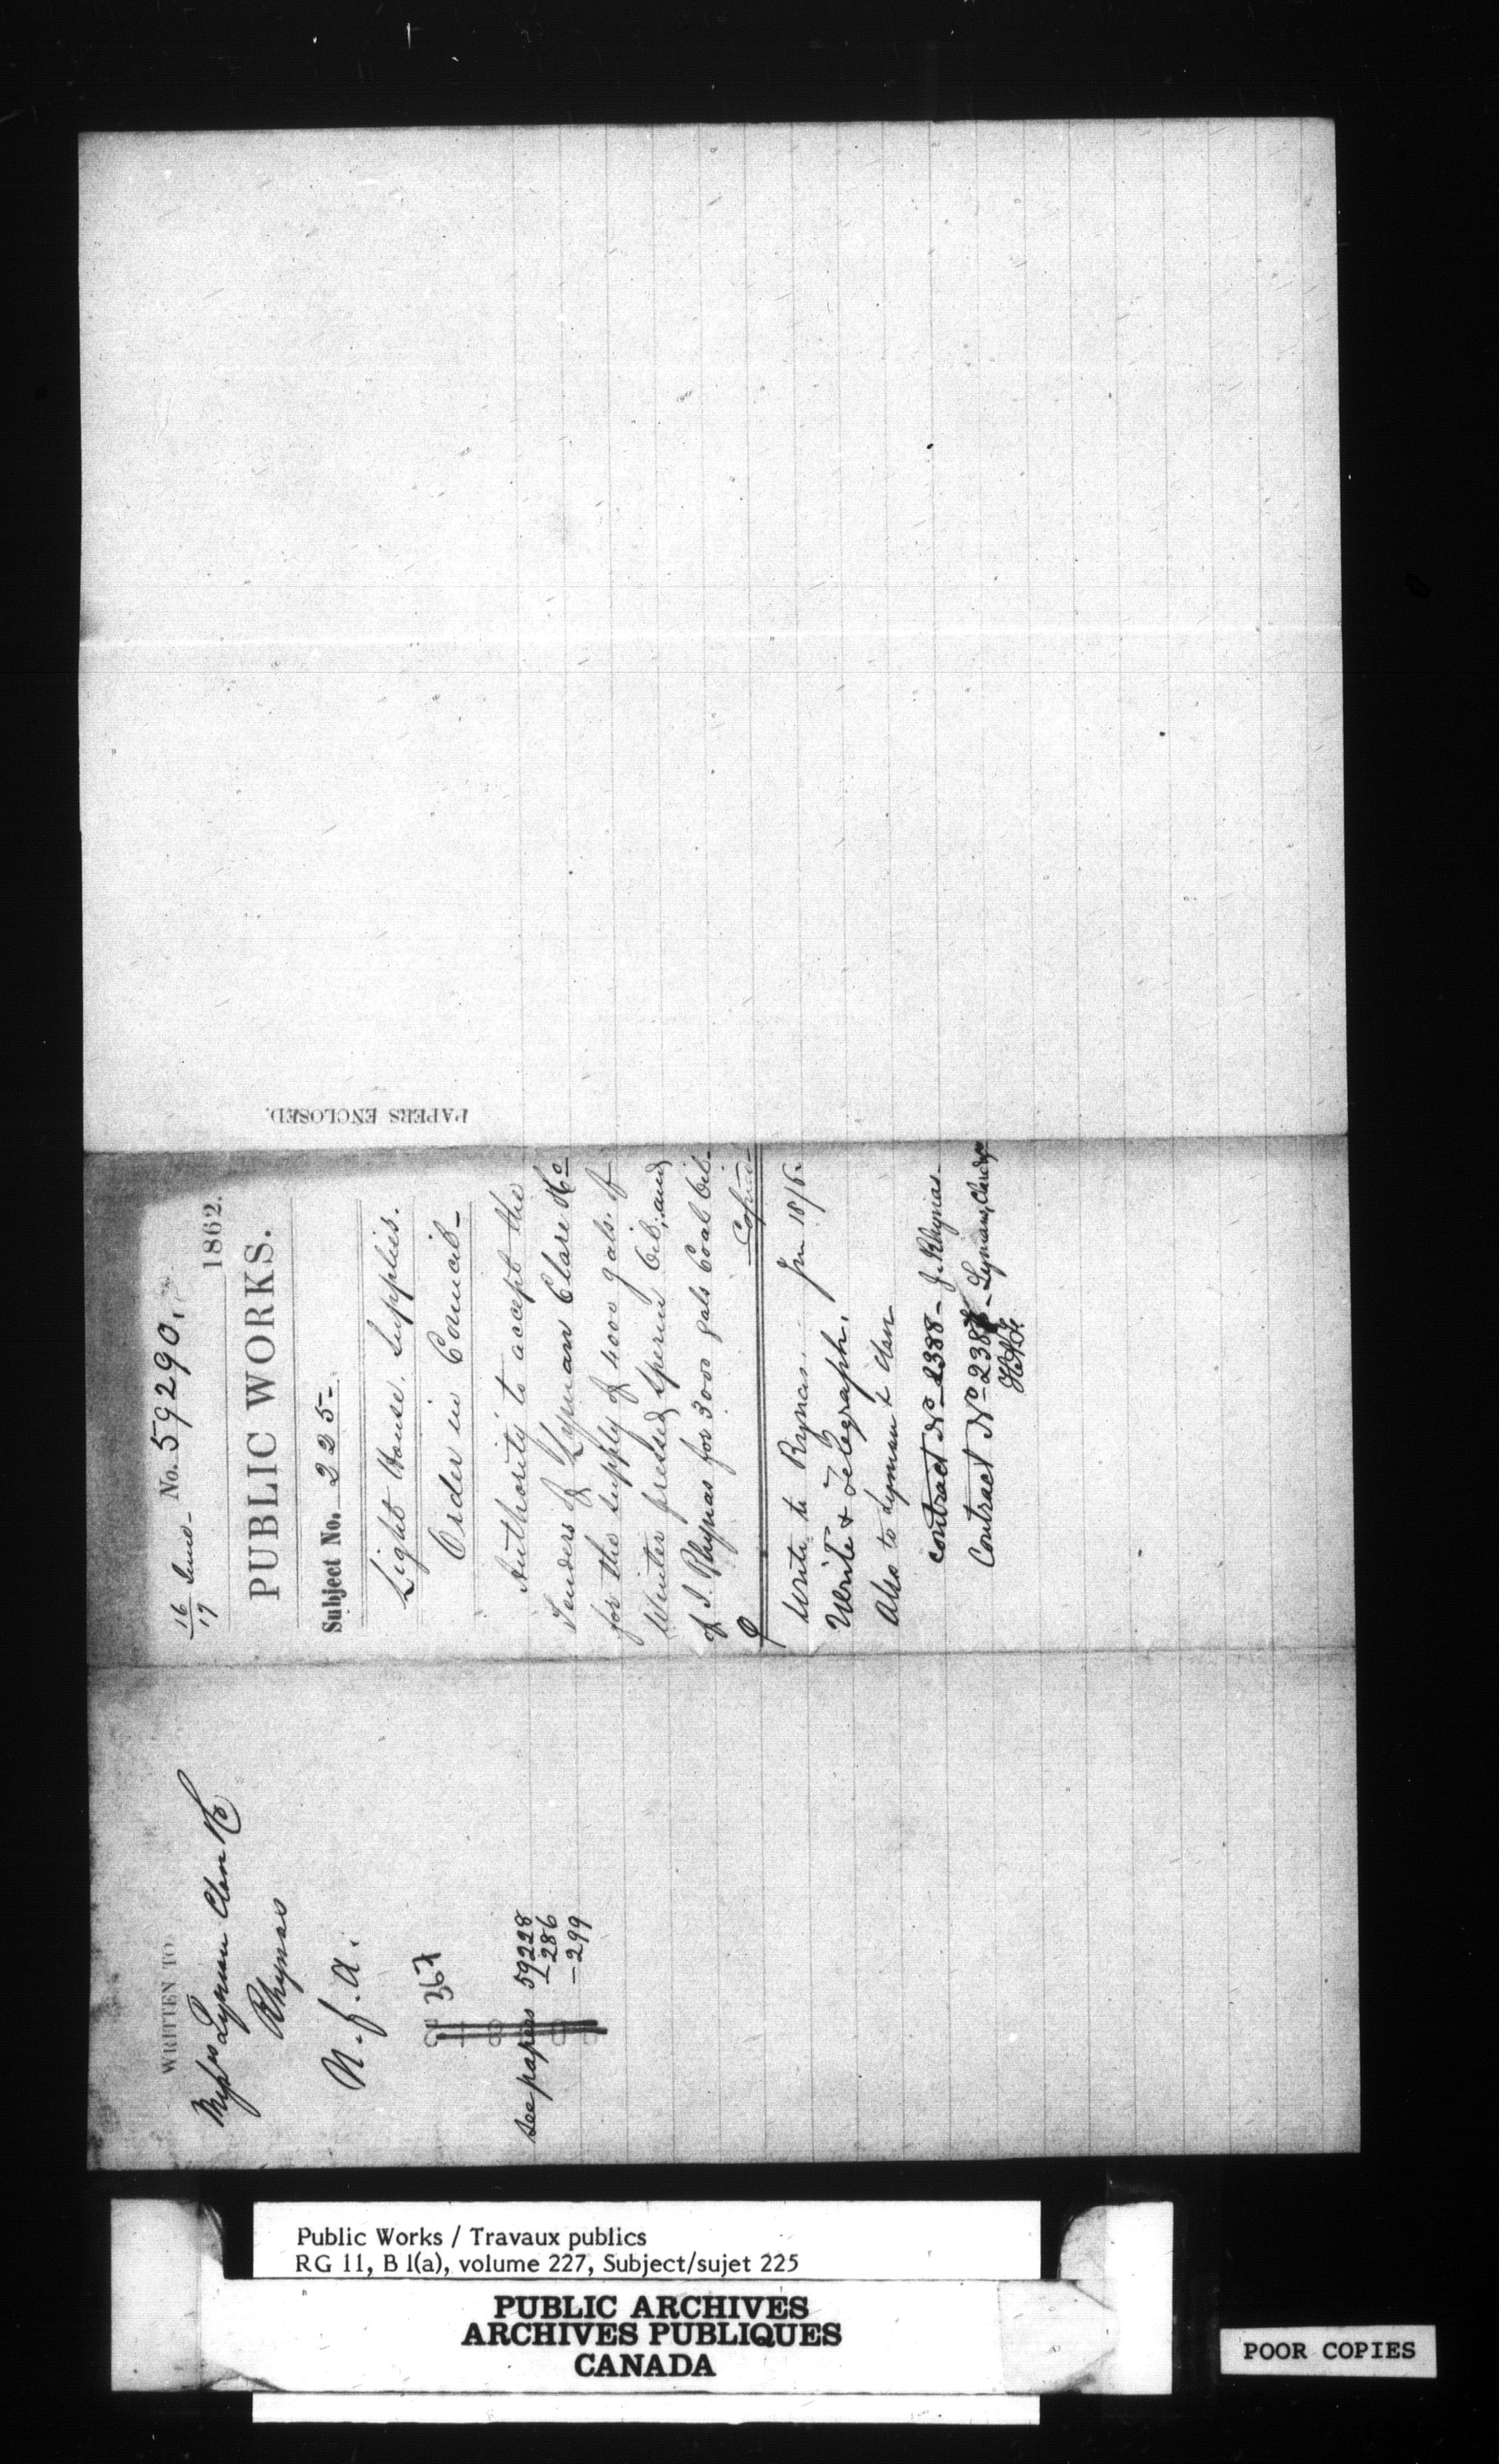 16/17 June - No. 59290.
1862.
PUBLIC WORKS.
Subject No. 225-
Light House Supplies.
Order in Council-
Authority to accept the
Tenders of Lyman Clare & Co
for the supply of 4000 gals. of
Winter pressed Sperm Oil, and
of J. Rhynas for 3000 gals Coal Oil-
Copied
Write to Rynas. 18/6.
Write & Telegraph.
Also to Lyman & Clare
contract No 2388 - J. Rhynas
Contract No 238 - Lymans, Clare & Co
PAPERS ENCLOSED.
WRITTEN TO
Messrs Lyman Clare & Co
Rhynas
N.f.a.
367
See papers 59228
- 286
- 299
Public Works / Travaux publics
RG 11, B 1(a), volume 227, Subject/sujet 225
PUBLIC ARCHIVES
ARCHIVES PUBLIQUES
CANADA
POOR COPIES